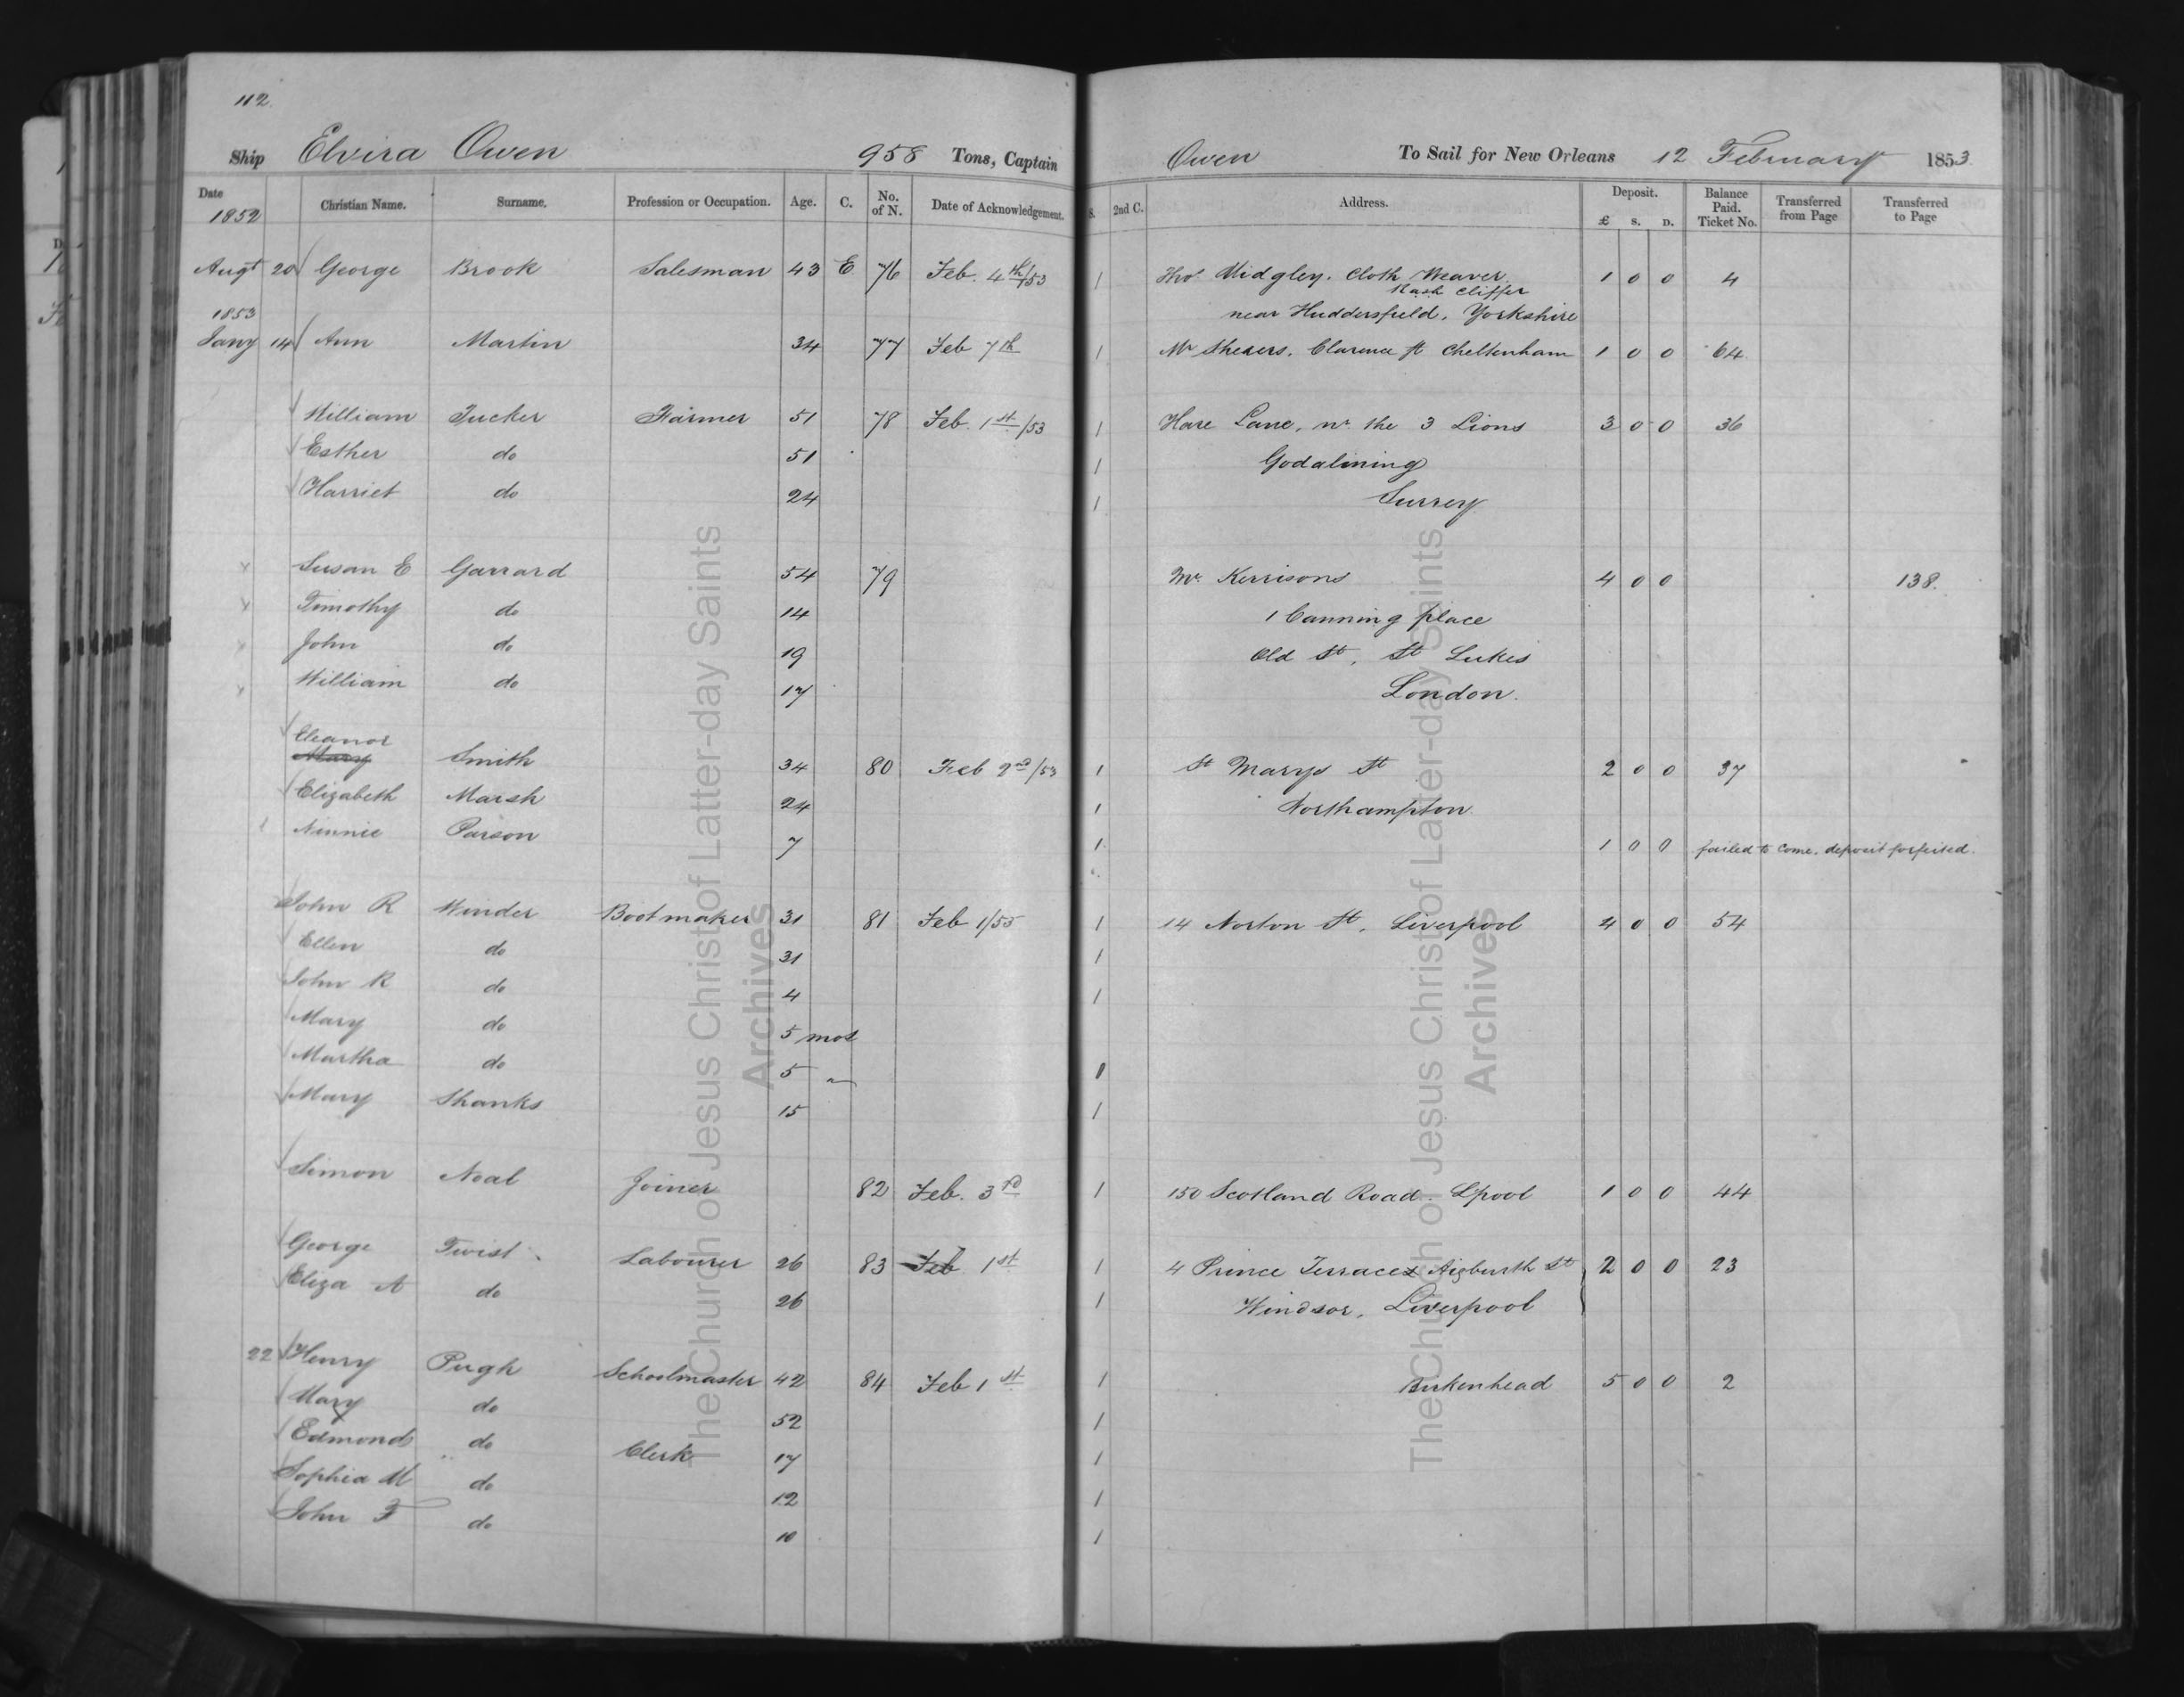 112.
Ship Elvira Owen 958 Tons, Captain Owen To Sail for New Orleans 12 February 1853.
Date 1852 Christian Name. Surname. Profession or Occupation. Age. C. No. of N. Date of Acknowledgement. S. 2nd C. Address. Deposit. £ S. D. Balance Paid. Ticket No. Transferred from Page Transferred to Page
Augt 20 George Brook Salesman 43 E 76 Feb. 4th/53 1 Thos. Midgley. Cloth Weaver. 1 0 0 4
1853 near Huddersfield, Yorkshire
Jany 14 Ann Martin 34 77 Feb 7th 1 Mr Shearers, Clarence St Cheltenham 1 0 0 64
William Tucker Farmer 51 78 Feb. 1st/53 1 Hare Lane, nr. the 3 Lions 3 0 0 36
Esther do 51 1 Godalming
Harriet do 24 1 Surrey
Susan E Garrard 54 79 Mr. Kerrisons 4 0 0 138.
Timothy do 14 1 Canning place
John do 19 Old St, St Lukes
William do 17 London.
Eleanor
Mary Smith 34 80 Feb 2nd/53 1 St Marys St 2 0 0 37
Elizabeth Marsh 24 1 Northampton.
Ninnie Parson 7 1 1 0 0 failed to come. deposit forfeited.
John R Winder Bootmaker 31 81 Feb 1/53 1 14 Norton St, Liverpool 4 0 0 54
Ellen do 31 1
John R do 4 1
Mary do 5 mos
Martha do 5 "
Mary Shanks 15 1
Simon Neal Joiner 82 Feb. 3rd 1 150 Scotland Road. Lpool 1 0 0 44
George Twist Labourer 26 83 Feb 1st 1 4 Prince Terrace Aigburth St 2 0 0 23
Eliza A do 26 1 Windsor, Liverpool
22 Henry Pugh Schoolmaster 42 84 Feb 1st 1 Birkenhead 5 0 0 2
Mary do 52 1
Edmond do Clerk 17 1
Sophia M do 12 1
John F do 10 1
The Church of Jesus Christ of Latter-day Saints
Archives
The Church of Jesus Christ of Latter-day Saints
Archives